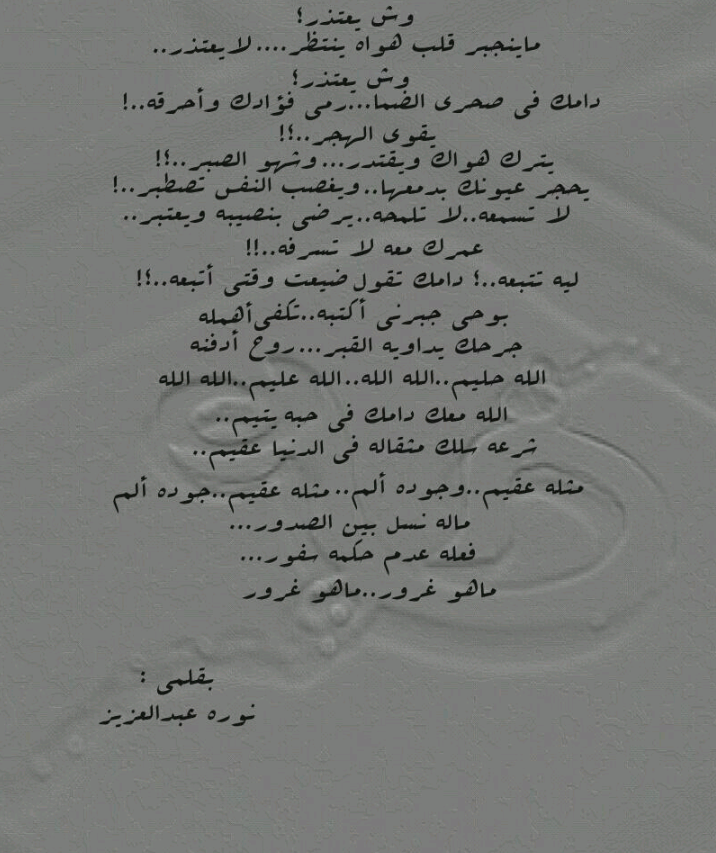 وش يعتذر؛
ماينجبر قلب هواه ينتظر....لايعتذر..
وش يعتذر؛
دامك في صحرى الضما...رمى فؤادك وأحرقه..!
يقوى الهجر..؟!
يترك هواك ويقتدر...وشهو الصبر..؟!
يحجر عيونك بدمعها..ويغصب النفس تصطبر..!
لا تسمعه..لا تلمحه..يرضى بنصيبه ويعتبر..
عمرك معه لا تسرفه..!!
ليه تتبعه..؛ دامك تقول ضيعت وقتي أتبعه..؟!
بوحي جبرني أكتبه..تكفى أهمله
جرحك يداويه القبر...روح أدفنه
الله حليم..الله الله..الله عليم..الله الله
الله معك دامك في حبه يتيم..
شرعه سلك مثقاله في الدنيا عقيم..
مثله عقيم..وجوده ألم..مثله عقيم..جوده ألم
ماله نسل بين الصدور...
فعله عدم حكمه سفور...
ماهو غرور..ماهو غرور
بقلمي :
نوره عبدالعزيز